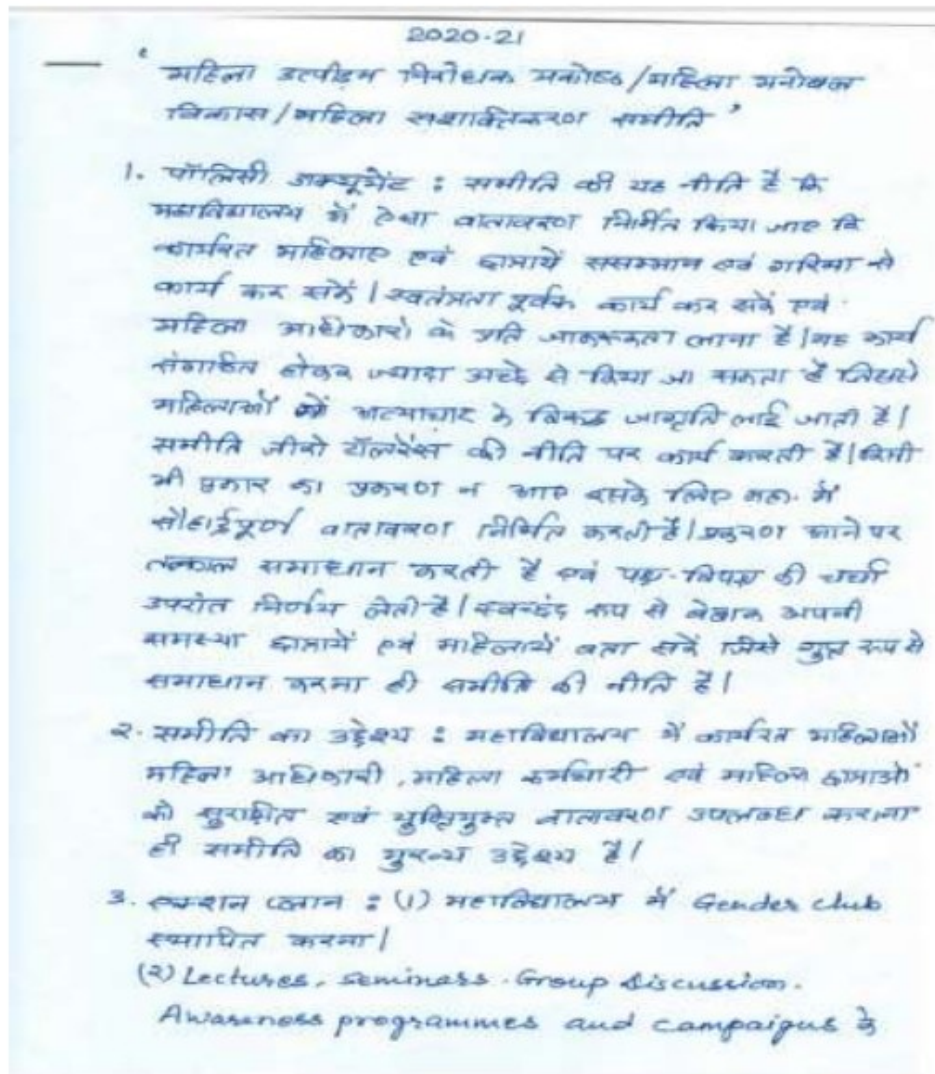 2020-21
' महिला उत्पीड़न निरोधक प्रकोष्ठ/महिला मनोबल
विकास/महिला सशक्तिकरण समीति '
1. पॉलिसी डाक्यूमेंट : समीति की यह नीति है कि
महाविद्यालय में ऐसा वातावरण निर्मित किया जाए कि
कार्यरत महिलाएं एवं छात्रायें ससम्मान एवं गरिमा से
कार्य कर सकें | स्वतंत्रता पूर्वक कार्य कर सकें एवं
महिला अधिकारों के प्रति जागरूकता लाना है | यह कार्य
संगठित होकर ज्यादा अच्छे से किया जा सकता है जिससे
महिलाओं में अत्याचार के विरुद्ध जागृति लाई जाती है |
समीति जीरो टॉलरेंस की नीति पर कार्य करती है | किसी
भी प्रकार का प्रकरण न आए इसके लिए महा. में
सौहार्द्रपूर्ण वातावरण निर्मित करती है | प्रकरण आने पर
तत्काल समाधान करती है एवं पक्ष-विपक्ष की चर्चा
उपरांत निर्णय लेती है | स्वच्छंद रूप से बेझिझक अपनी
समस्या छात्रायें एवं महिलायें बता सकें जिसे गुप्त रूप से
समाधान करना ही समीति की नीति है |
2. समीति का उद्देश्य : महाविद्यालय में कार्यरत महिलाओं
महिला अधिकारी, महिला कर्मचारी एवं महिला छात्राओं
को सुरक्षित एवं युक्तियुक्त वातावरण उपलब्ध कराना
ही समीति का मुख्य उद्देश्य है |
3. एक्शन प्लान : (1) महाविद्यालय में Gender club
स्थापित करना |
(2) Lectures, Seminars. Group discussion.
Awareness programmes and campaigns के